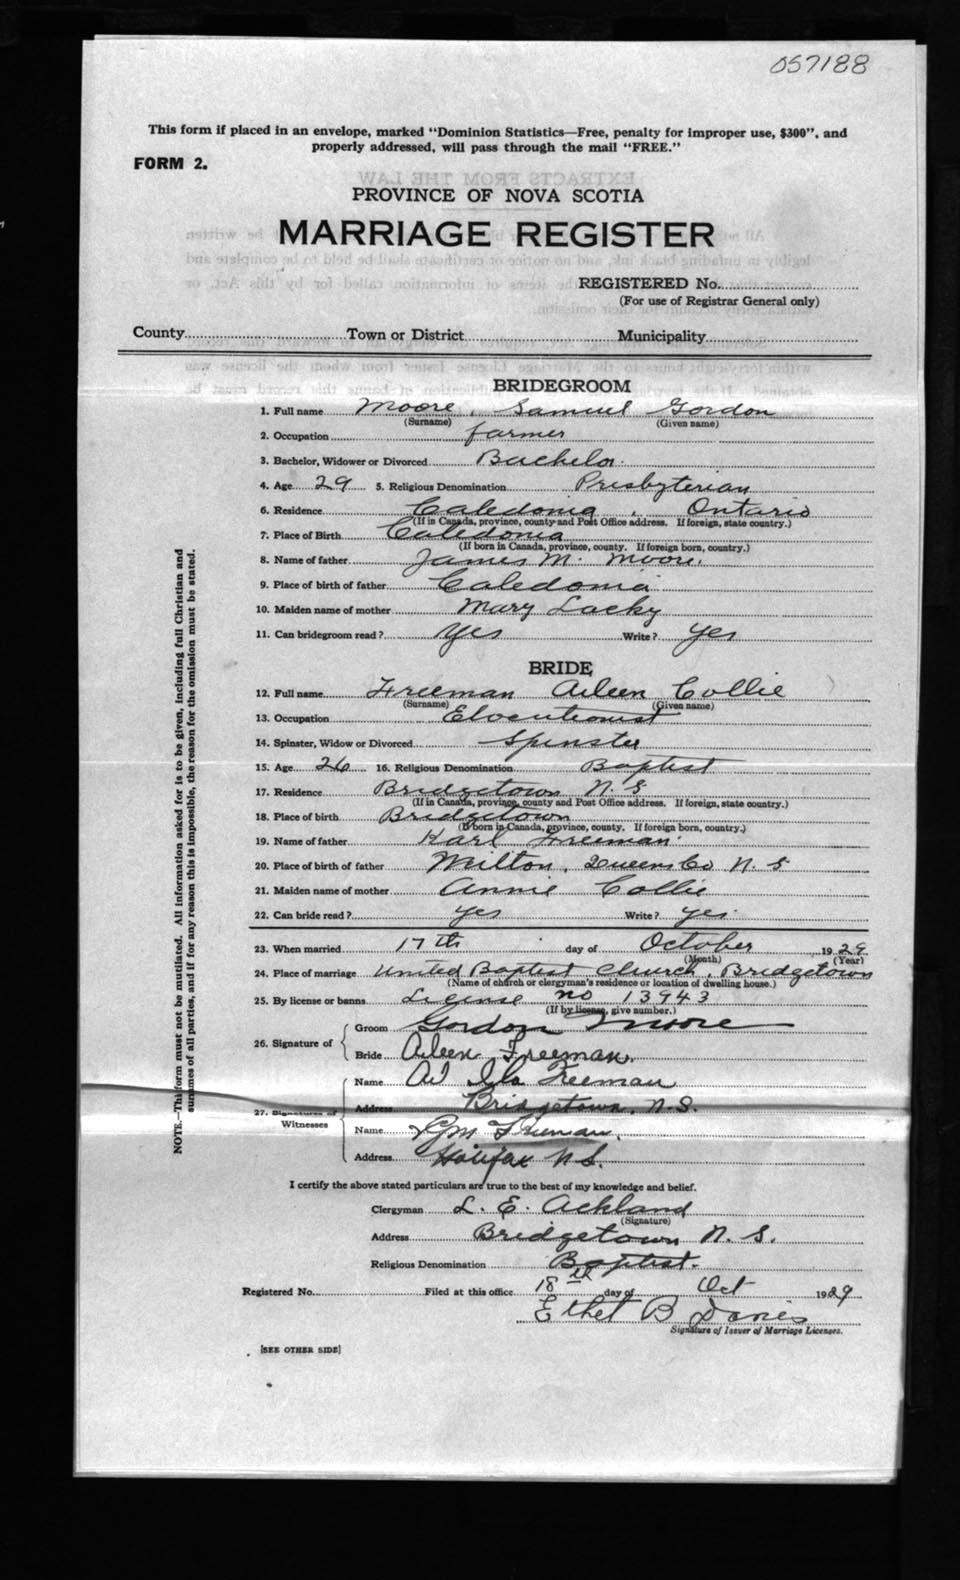 057188
This form if placed in an envelope, marked "Dominion Statistics—Free, penalty for improper use, $300", and
properly addressed, will pass through the mail "FREE."
FORM 2.
PROVINCE OF NOVA SCOTIA
MARRIAGE REGISTER
REGISTERED No.
(For use of Registrar General only)
County Town or District Municipality
BRIDEGROOM
1. Full name Moore, Samuel Gordon
(Surname) (Given name)
2. Occupation farmer
3. Bachelor, Widower or Divorced Bachelor
4. Age 29 5. Religious Denomination Presbyterian
6. Residence Caledonia, Ontario
(If in Canada, province, county and Post Office address. If foreign, state country.)
7. Place of Birth Caledonia
(If born in Canada, province, county. If foreign born, country.)
8. Name of father James M. Moore.
9. Place of birth of father Caledonia
10. Maiden name of mother Mary Lacky
11. Can bridegroom read? Yes Write? Yes
BRIDE
12. Full name Freeman Aileen Collie
(Surname) (Given name)
13. Occupation Elocutionist
14. Spinster, Widow or Divorced Spinster
15. Age 26 16. Religious Denomination Baptist
17. Residence Bridgetown N. S
(If in Canada, province, county and Post Office address. If foreign, state country.)
18. Place of birth Bridgetown
(If born in Canada, province, county. If foreign born, country.)
19. Name of father Karl Freeman
20. Place of birth of father Milton, Queens Co N. S
21. Maiden name of mother Annie Collie
22. Can bride read? yes Write? yes
23. When married 17th day of October 1929
(Month) (Year)
24. Place of marriage United Baptist Church, Bridgetown
(Name of church or clergyman's residence or location of dwelling house.)
25. By license or banns License no 13943
(If by license, give number.)
26. Signature of Groom Gordon Moore
Bride Aileen Freeman.
27. Signatures of Witnesses
Name Ila Freeman
Address Bridgetown, N.S.
Name Freeman.
Address Halifax N S.
I certify the above stated particulars are true to the best of my knowledge and belief.
Clergyman L. E. Ackland
(Signature)
Address Bridgetown N. S.
Religious Denomination Baptist.
Registered No. Filed at this office 18th day of Oct 1929
Ethel B Davies
Signature of Issuer of Marriage Licenses.
[SEE OTHER SIDE]
NOTE.—This form must not be mutilated. All information asked for is to be given, including full Christian and
surnames of all parties, and if for any reason this is impossible, the reason for the omission must be stated.